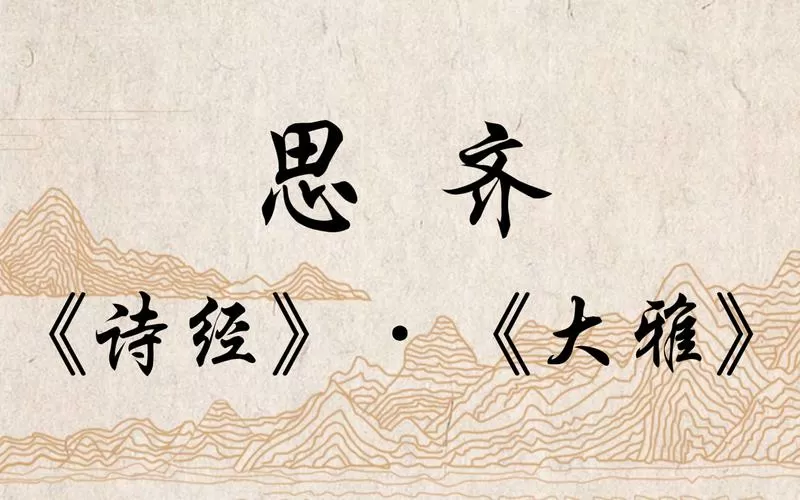 思齐
《诗经》·《大雅》